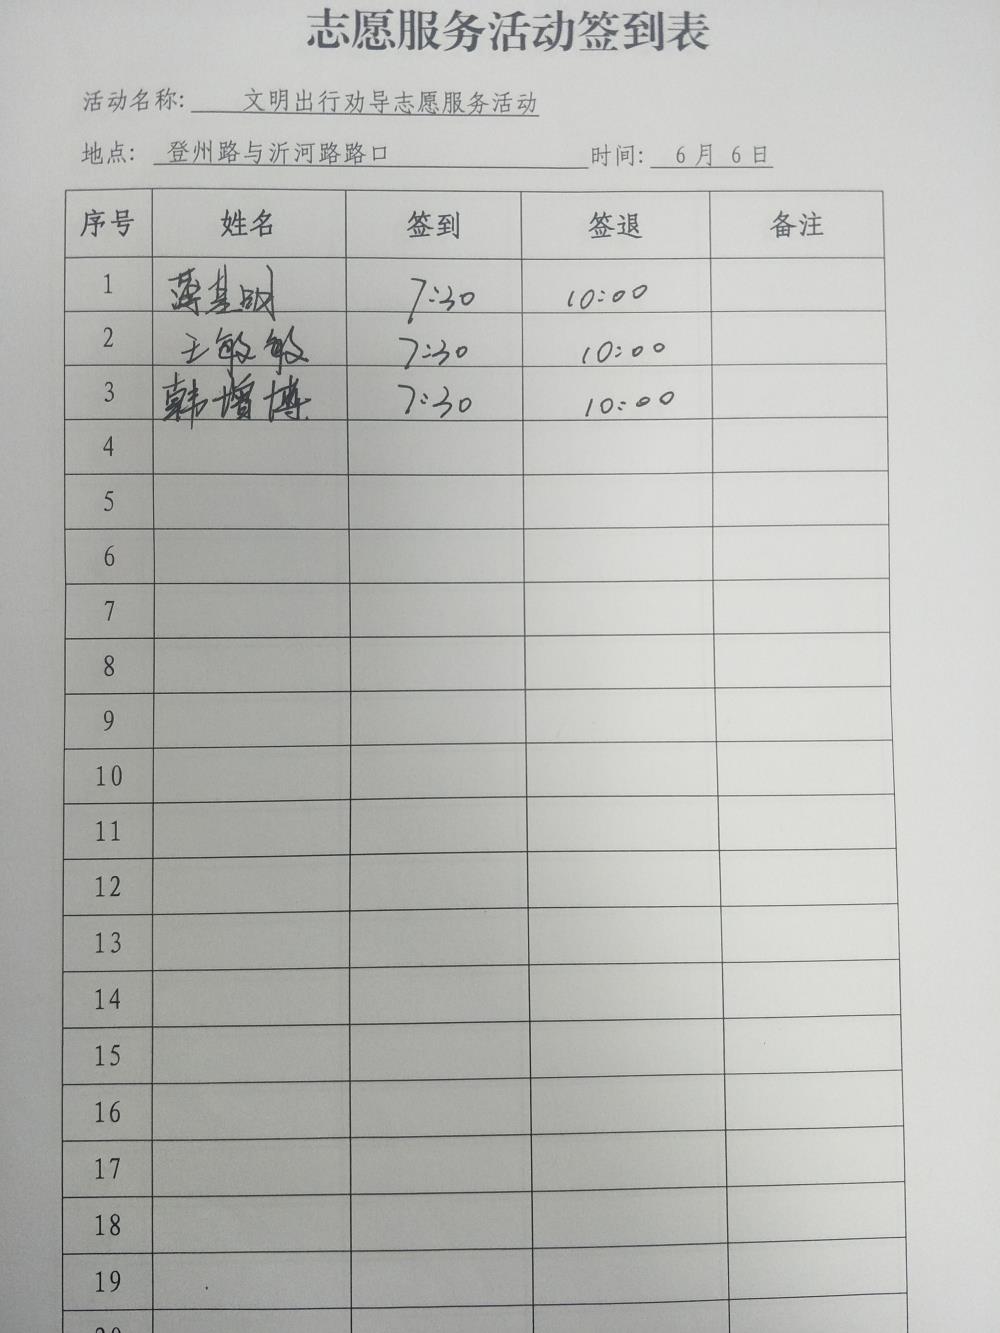 志愿服务活动签到表
活动名称: 文明出行劝导志愿服务活动
地点: 登州路与沂河路路口 时间: 6月6日
序号 姓名 签到 签退 备注
1 薄基明 7:30 10:00
2 王敏敏 7:30 10:00
3 韩增博 7:30 10:00
4
5
6
7
8
9
10
11
12
13
14
15
16
17
18
19
20